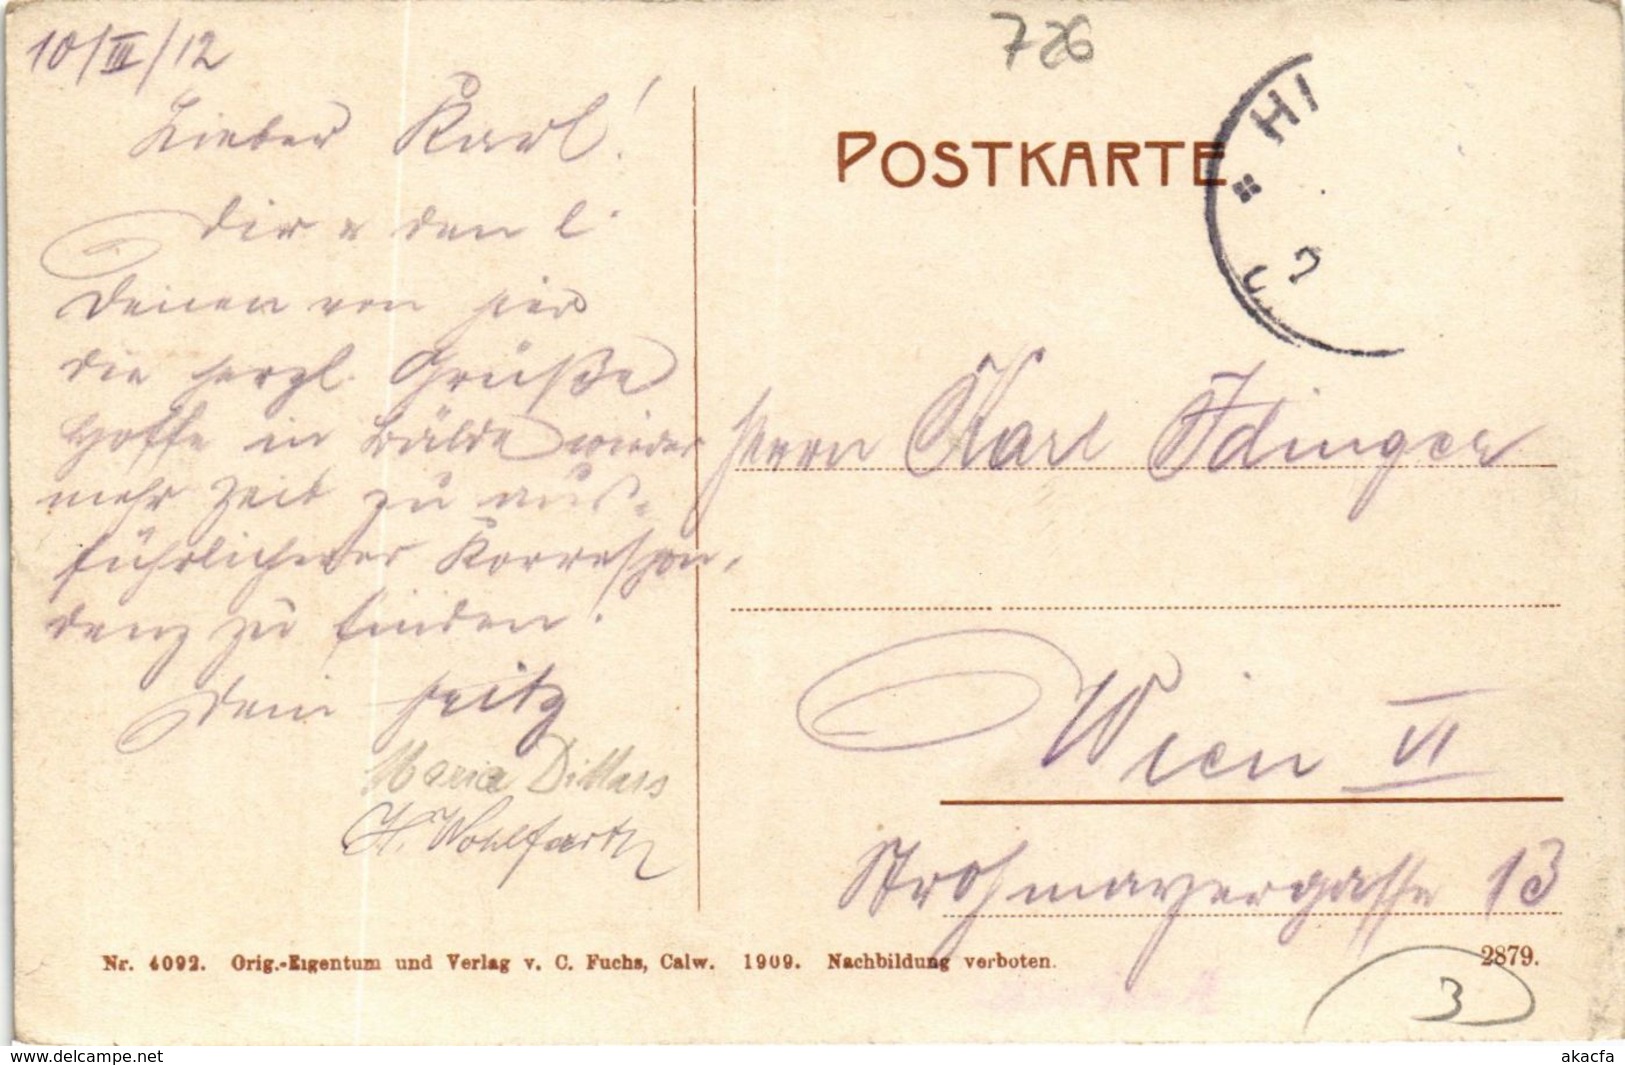 10/III/12
726
Lieber Karl!
Dir u den l.
Deinen von hier
die herzl. Grüße
Hoffe in Bälde wieder
mehr Zeit zu aus-
führlicherer Korrespon-
denz zu finden!
Dein Fritz
Maria
H. Wohlfarth
POSTKARTE
HI
Herrn Karl Idinger
Wien VI
Strohmayergasse 13
Nr. 4092. Orig.-Eigentum und Verlag v. C. Fuchs, Calw. 1909. Nachbildung verboten.
2879.
3
akacfa-delcampe.net
akacfa